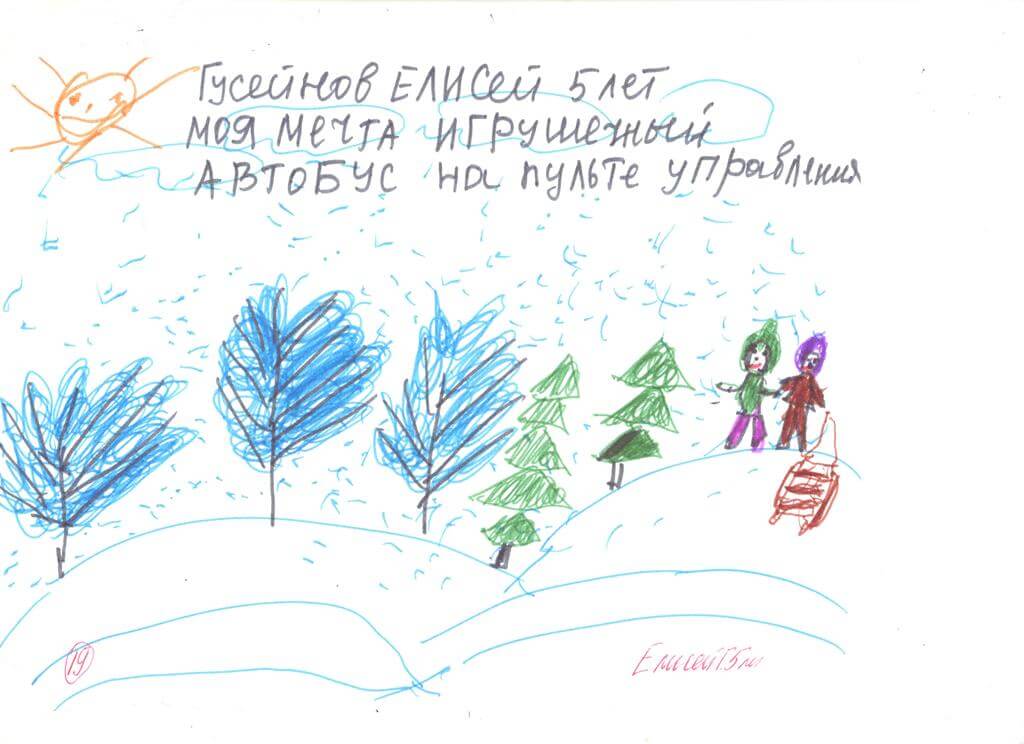 Гусейнов Елисей 5 лет
моя мечта игрушечный
автобус на пульте управления
19
Елисей 5 л